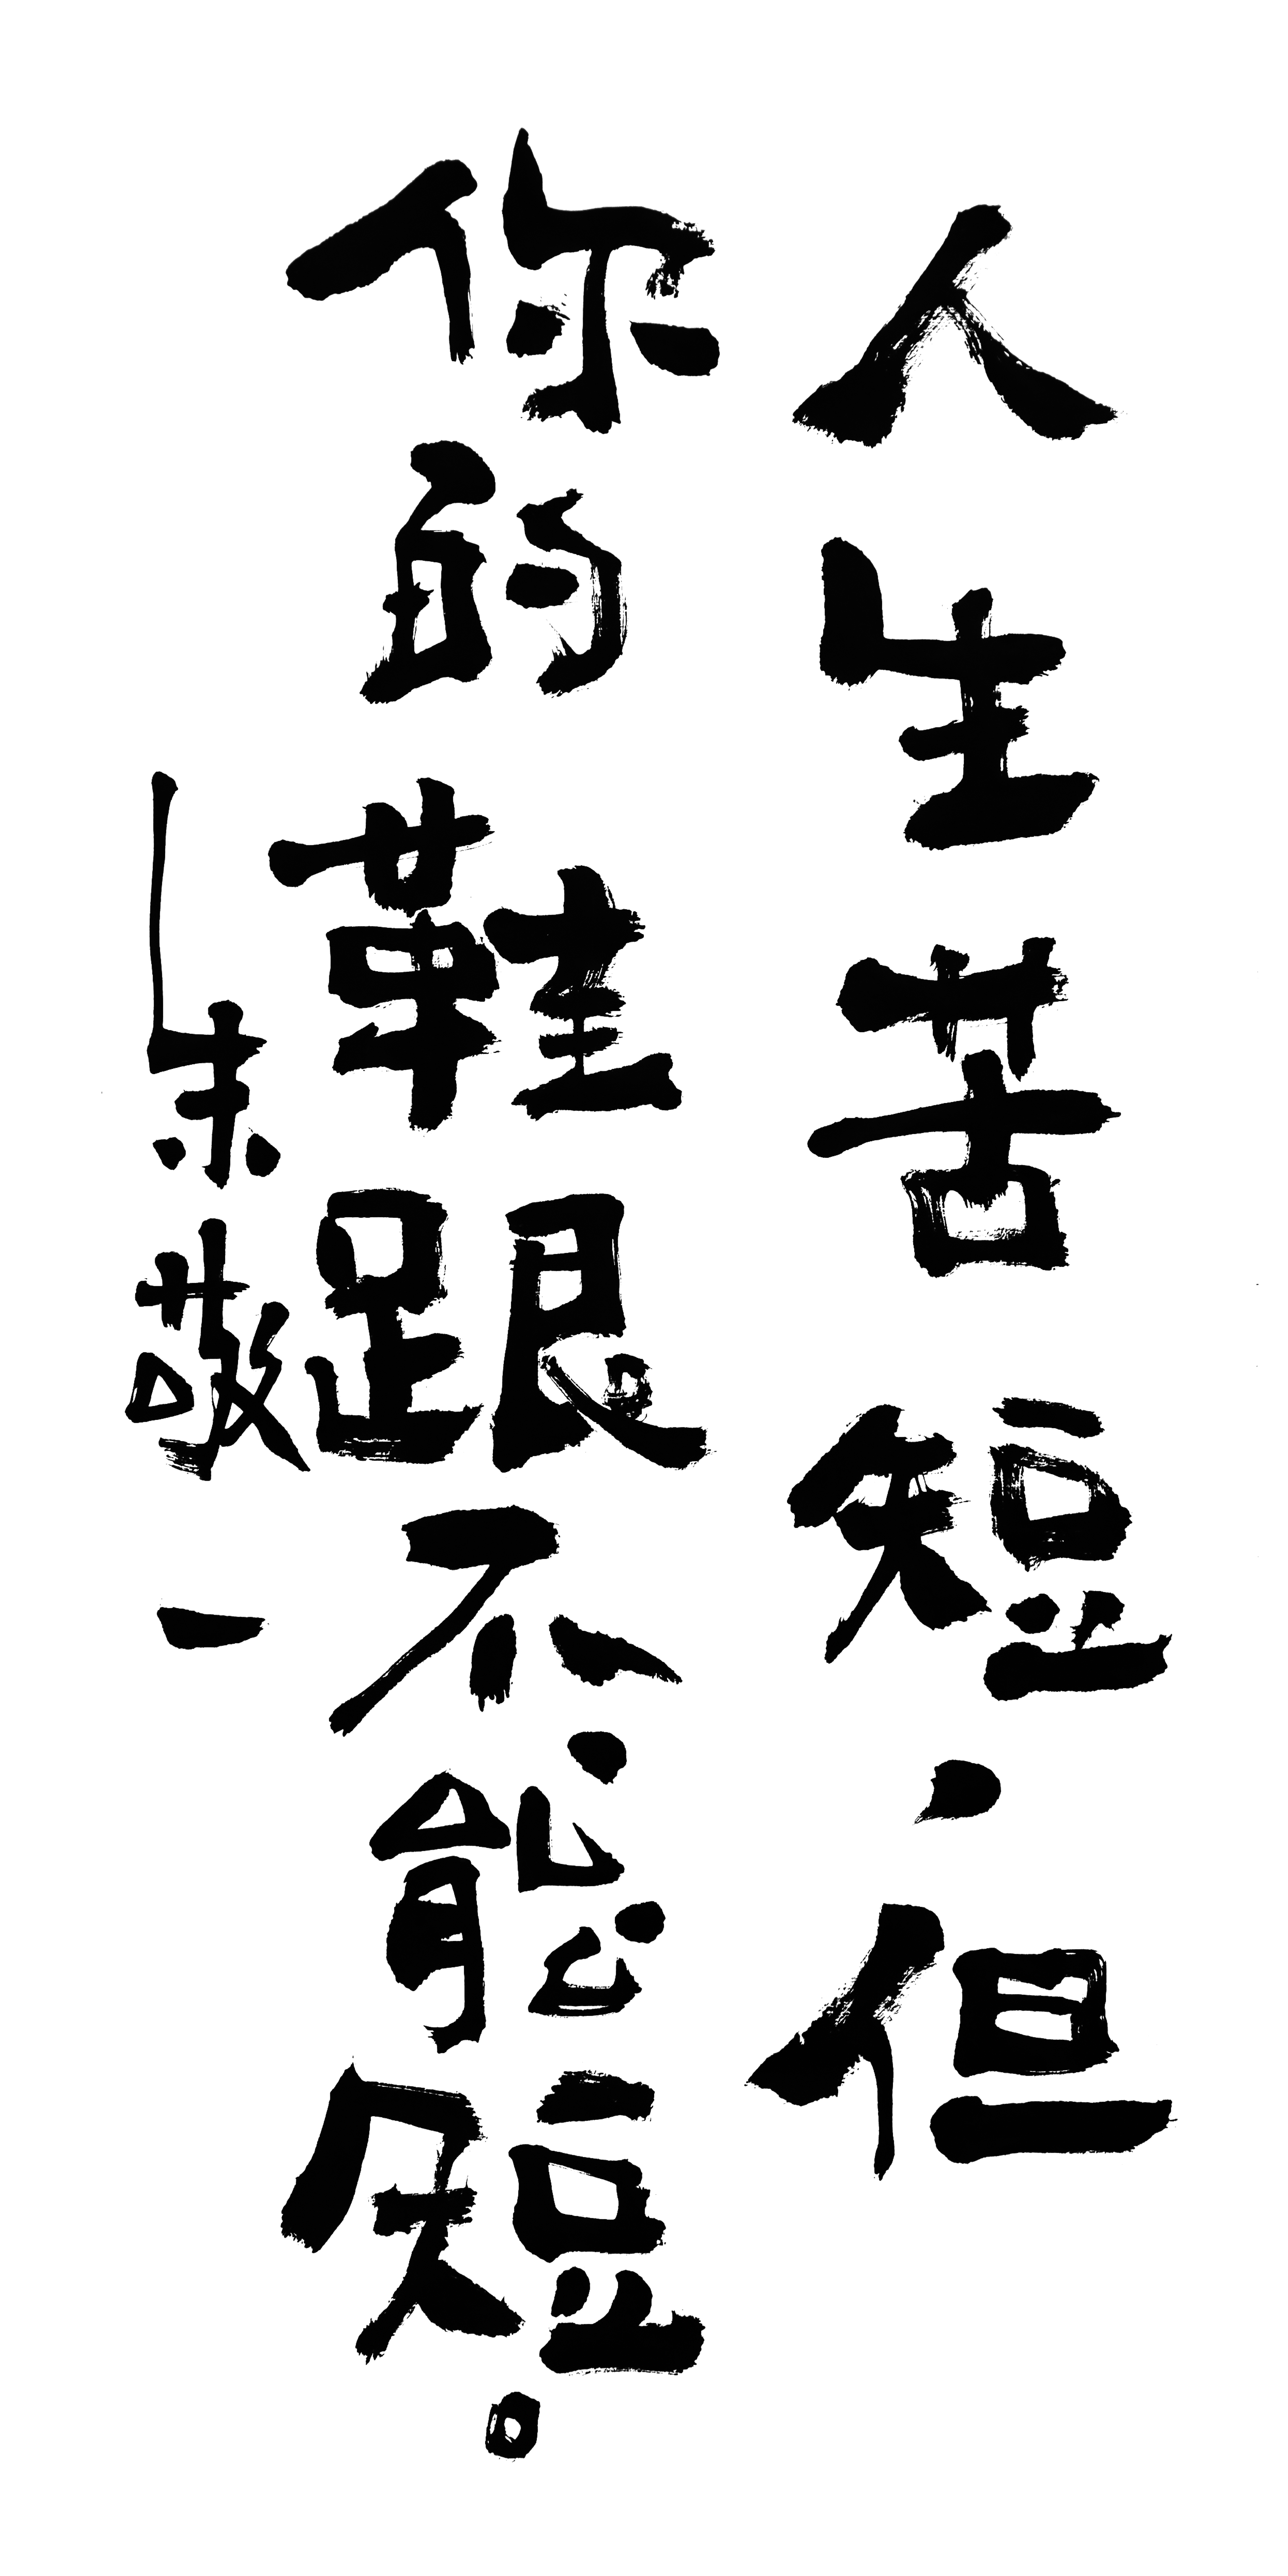 人生苦短,但
你的鞋跟不能短。
朱敬一